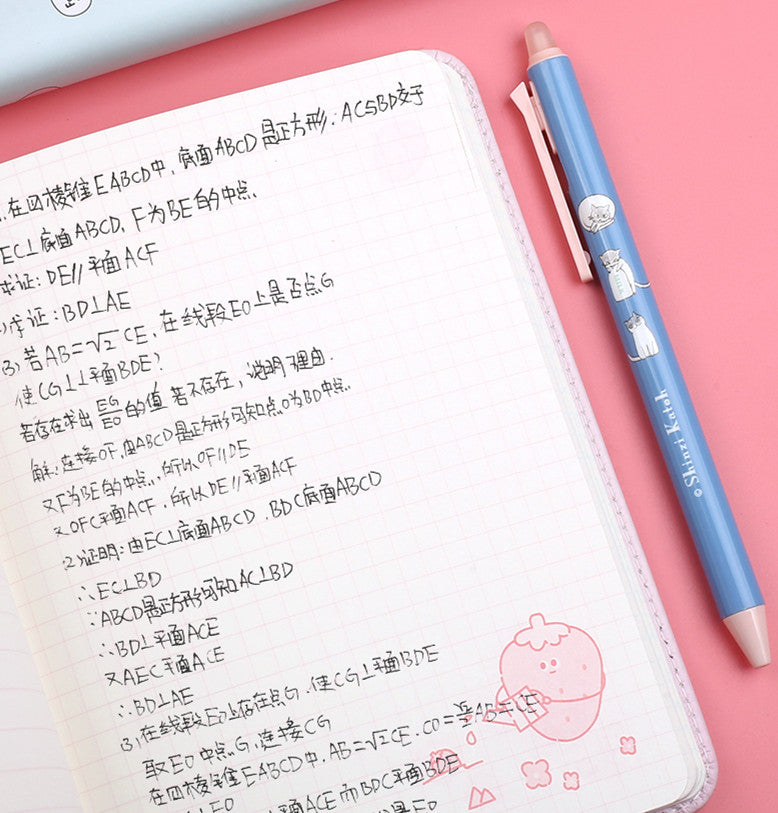 在四棱锥EABCD中，底面ABCD是正方形，AC与BD交于
EC⊥底面ABCD，F为BE的中点、
求证：DE//平面ACF
求证：BD⊥AE
(3)若AB=√2CE，在线段EO上是否点G
使CG⊥⊥平面BDE？
若存在求出EG/EO的值 若不存在，说明理由．
解：连接OF，由ABCD是正方形可知点O为BD中点．
又F为BE的中点，所以OF//DE
又OF⊂平面ACF，所以DE//平面ACF
(2)证明：由EC⊥底面ABCD，BD⊂底面ABCD
∴EC⊥BD
∵ABCD是正方形可知AC⊥BD
∴BD⊥平面ACE
又AE⊂平面ACE
∴BD⊥AE
(3)在线段EO上存在点G，使CG⊥平面BDE
取EO中点G，连接CG
在四棱锥EABCD中，AB=√2CE，CO=AB=CE
平面ACE而BD⊂平面BDE
EO
©Shinzi Katoh